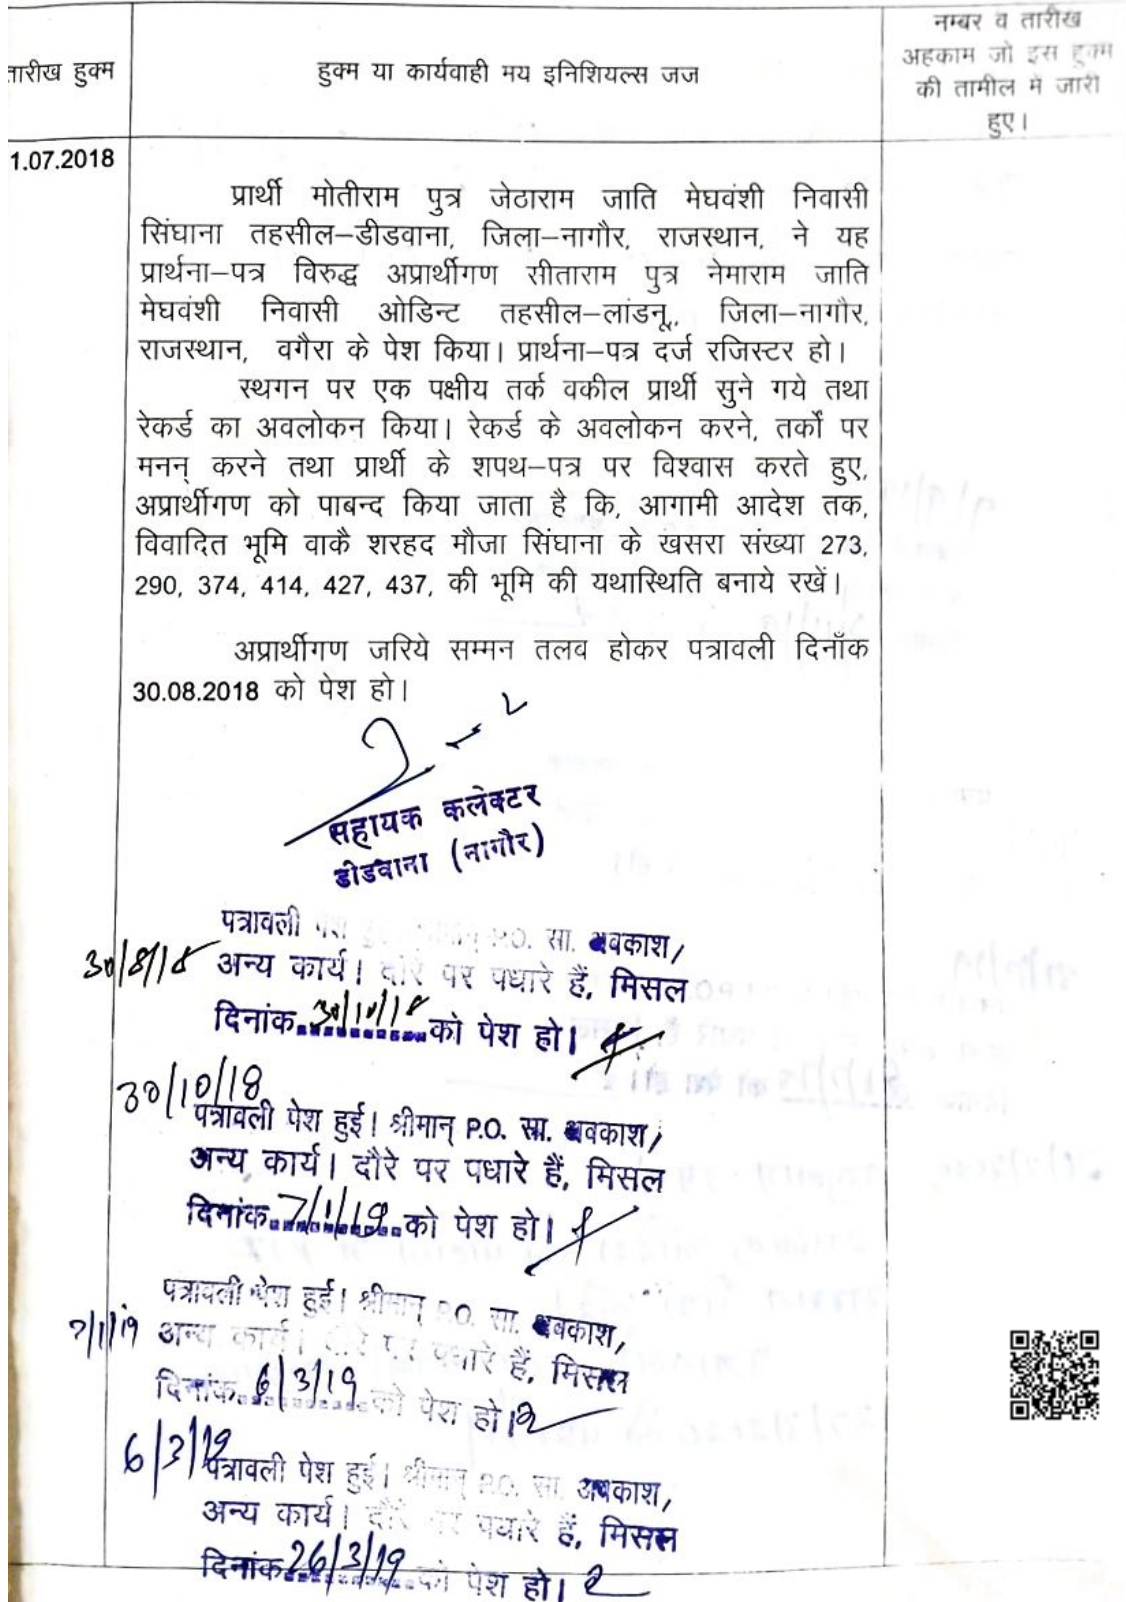 तारीख हुक्म
हुक्म या कार्यवाही मय इनिशियल्स जज
नम्बर व तारीख
अहकाम जो इस हुक्म
की तामील में जारी
हुए।
1.07.2018
प्रार्थी मोतीराम पुत्र जेठाराम जाति मेघवंशी निवासी
सिंघाना तहसील–डीडवाना, जिला–नागौर, राजस्थान, ने यह
प्रार्थना–पत्र विरुद्ध अप्रार्थीगण सीताराम पुत्र नेमाराम जाति
मेघवंशी निवासी ओडिन्ट तहसील–लांडनू,, जिला–नागौर,
राजस्थान, वगैरा के पेश किया। प्रार्थना–पत्र दर्ज रजिस्टर हो।
स्थगन पर एक पक्षीय तर्क वकील प्रार्थी सुने गये तथा
रेकर्ड का अवलोकन किया। रेकर्ड के अवलोकन करने, तर्कों पर
मनन् करने तथा प्रार्थी के शपथ–पत्र पर विश्वास करते हुए,
अप्रार्थीगण को पाबन्द किया जाता है कि, आगामी आदेश तक,
विवादित भूमि वाकै शरहद मौजा सिंघाना के खसरा संख्या 273,
290, 374, 414, 427, 437, की भूमि की यथास्थिति बनाये रखें।
अप्रार्थीगण जरिये सम्मन तलव होकर पत्रावली दिनाँक
30.08.2018 को पेश हो।
सहायक कलेक्टर
डीडवाना (नागौर)
पत्रावली पेश हुई। श्रीमान् P.O. सा. अवकाश,
30/8/18 अन्य कार्य। दौरे पर पधारे हैं, मिसल
दिनांक 30/10/18 को पेश हो।
30/10/18
पत्रावली पेश हुई। श्रीमान् P.O. सा. अवकाश,
अन्य कार्य। दौरे पर पधारे हैं, मिसल
दिनांक 7/1/19 को पेश हो।
पत्रावली पेश हुई। श्रीमान् P.O. सा. अवकाश,
7/1/19 अन्य कार्य। दौरे पर पधारे हैं, मिसल
दिनांक 6/3/19 को पेश हो।
6/3/19 पत्रावली पेश हुई। श्रीमान् P.O. सा. अवकाश,
अन्य कार्य। दौरे पर पधारे हैं, मिसल
दिनांक 26/3/19 को पेश हो।